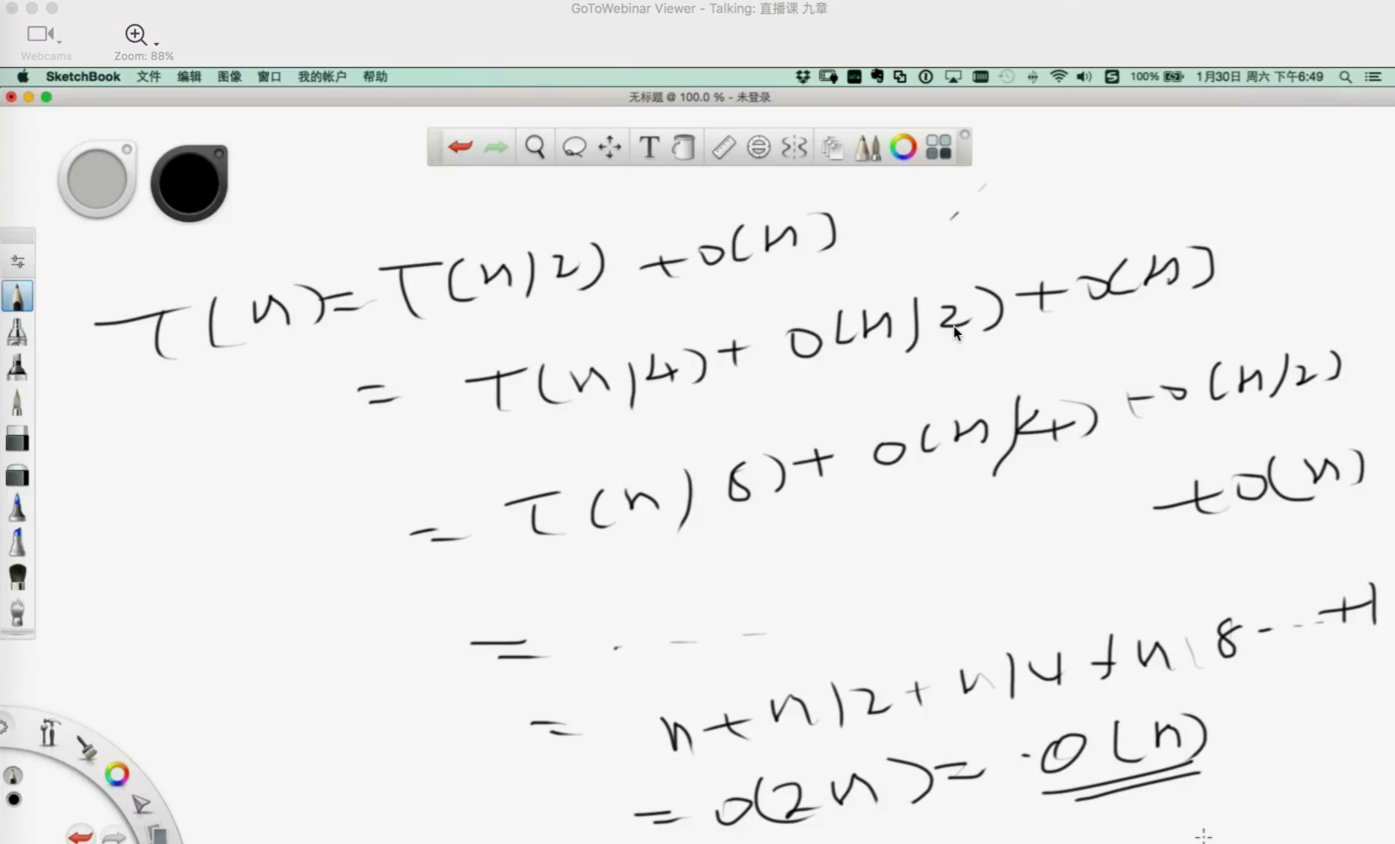 GoToWebinar Viewer - Talking: 直播课 九章
Webcams
Zoom: 88%
SketchBook 文件 编辑 图像 窗口 我的帐户 帮助 100% 1月30日 周六 下午6:49
无标题 @ 100.0 % - 未登录
T(n)=T(n/2)+O(n)
= T(n/4)+ O(n/2)+O(n)
= T(n/8)+ O(n/4)+O(n/2)
+O(n)
= . - -
= n+n/2+n/4+n/8- ..+1
= O(2n)= O(n)